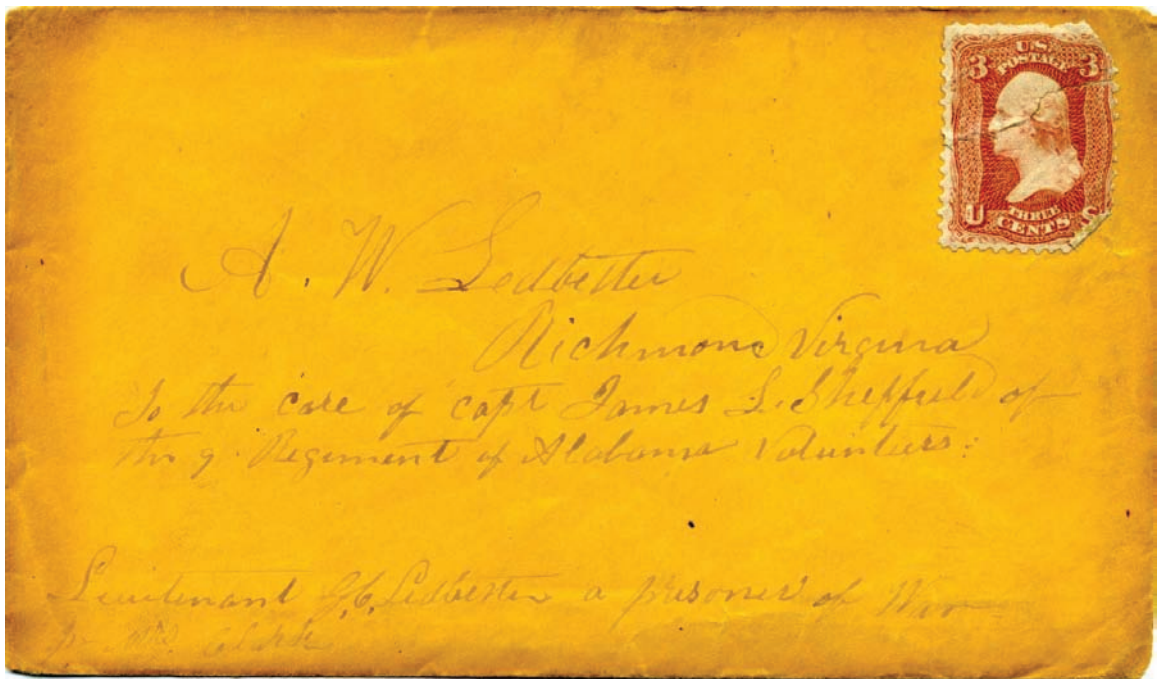 U.S.
POSTAGE
3 3
U S
THREE
CENTS
A. W. Ledbetter
Richmond Virginia
To the care of capt James L. Sheffield of
the 9. Regiment of Alabama Volunteers:
Lieutenant J. C. Ledbetter a prisoner of War